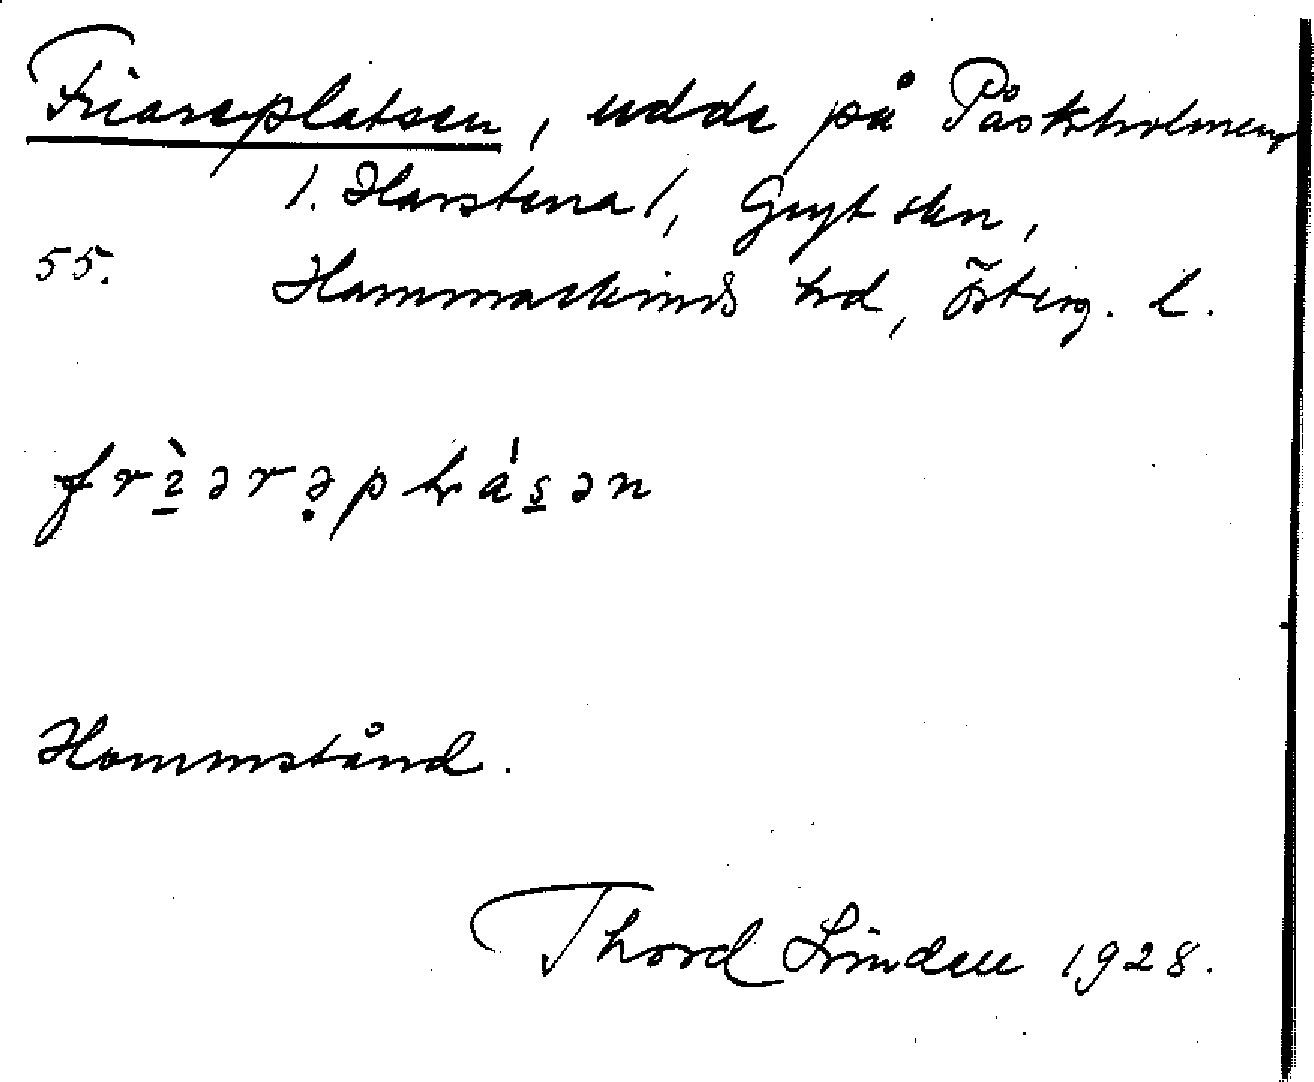 Friareplatsen, udde på Påskholmen,
1. Harstena 1, Gryt skn,
55. Hammarkinds hd, Österg. l.
frì̱ərə̣plá́s̱ən
Hommstånd.
Thord Linden 1928.